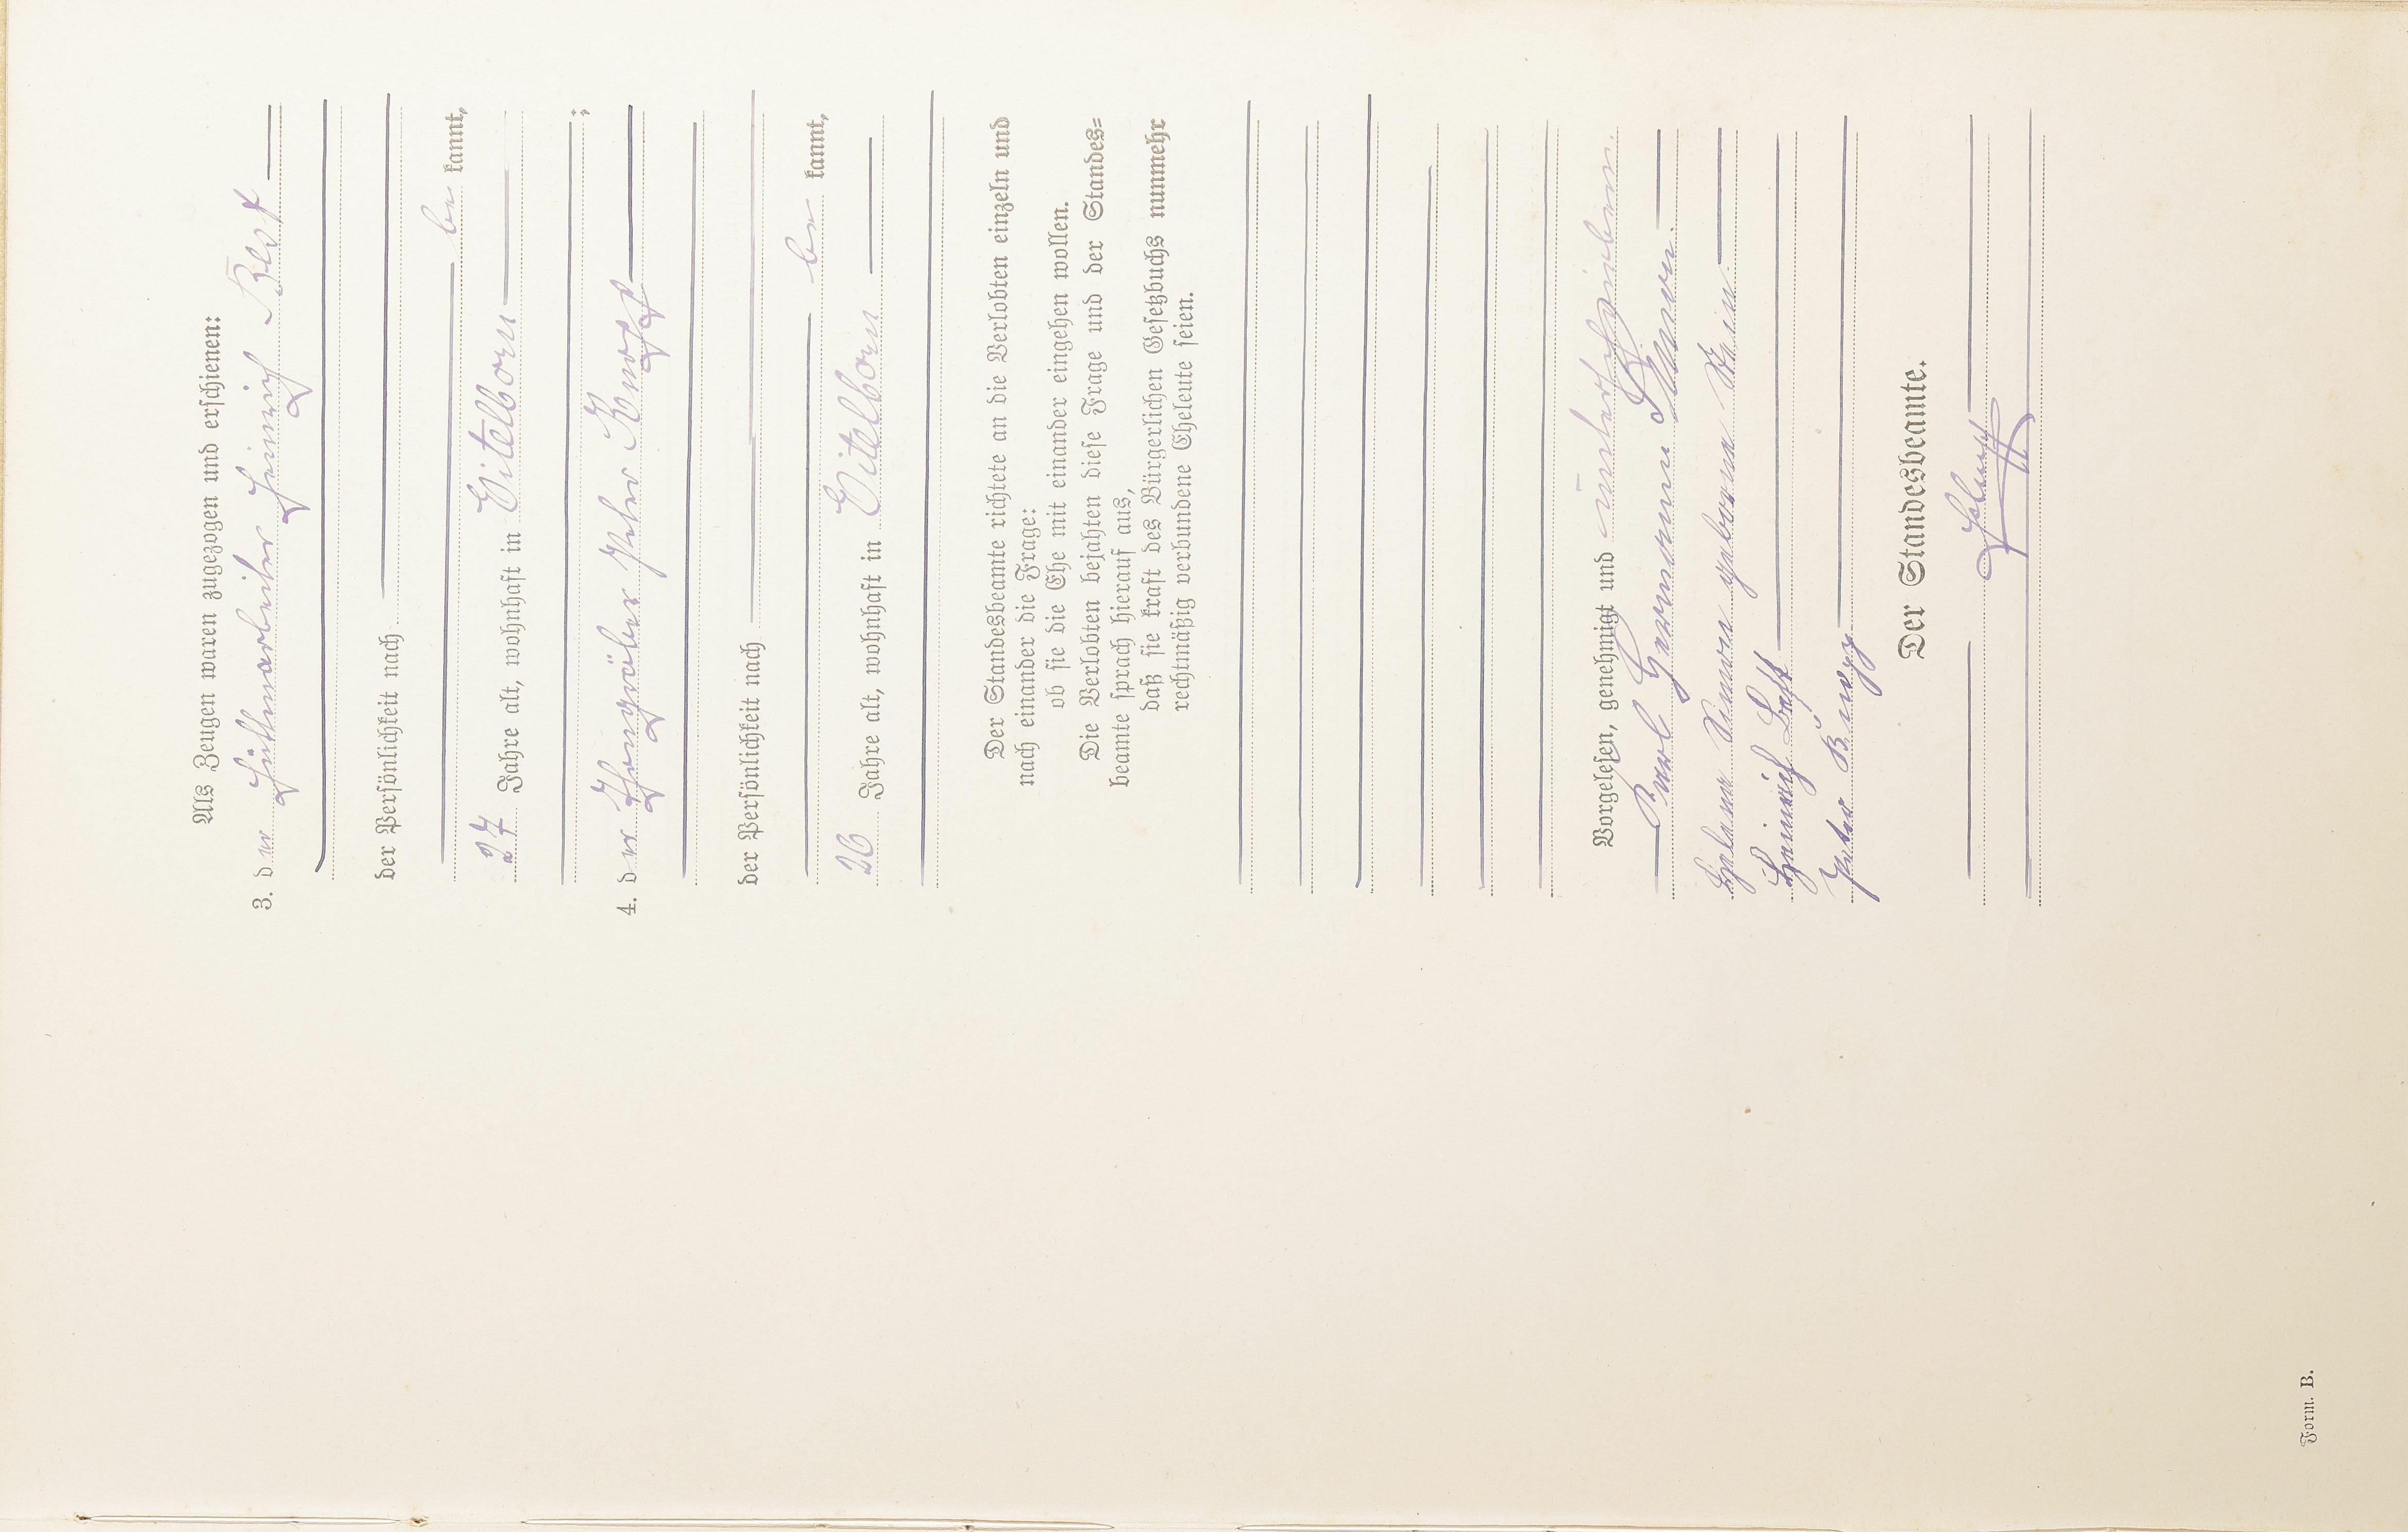 Als Zeugen waren zugezogen und erschienen:
3. der Hüttenarbeiter Heinrich
der Persönlichkeit nach
be kannt,
27 Jahre alt, wohnhaft in Eitelborn
;
4. der Thongräber Peter
der Persönlichkeit nach
be kannt,
26 Jahre alt, wohnhaft in Eitelborn
Der Standesbeamte richtete an die Verlobten einzeln und
nach einander die Frage:
ob sie die Ehe mit einander eingehen wollen.
Die Verlobten bejahten diese Frage und der Standes=
beamte sprach hierauf aus,
daß sie kraft des Bürgerlichen Gesetzbuchs nunmehr
rechtmäßig verbundene Eheleute seien.
Vorgelesen, genehmigt und unterschrieben.
Karl Hermann Simon.
Helena Simon geborene
Heinrich
Peter
Der Standesbeamte.
Form. B.